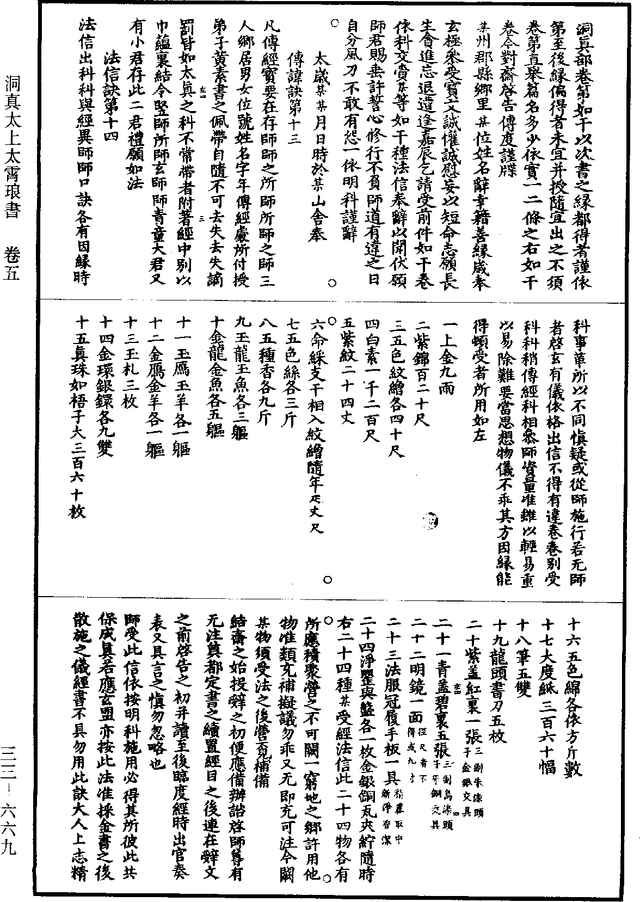 洞真部卷第如干以次書之緣都得者謹依
第至後緣偏得者未宜并授隨宜出之不須
卷第直舉篇名多少依實一二條之右如干
卷今對齋啓告傳度謹牒
某州郡縣鄉里某位姓名辭幸籍善緣咸奉
玄極參受寶文誠懽誠慰妄以短命志願長
生會進忘退遭逢嘉辰乞請受前件如干卷
依科文賷某等如干種法信奉辭以聞伏願
師君賜垂許誓心修行不負師道有違之日
自分風刀不敢有怨一依明科謹辭
太歲某某月日時於某山舍奉
傳諱訣第十三
凡傳經寶要在存師師之所師所師之師三
人鄉居男女位號姓名字年傳經處所付授
弟子黃素書之佩帶自隨不可去失去失謫
罰皆如太真之科不常帶者附著經中別以
巾蘊裹結令堅師所師玄師師青童大君又
有小君存此二君禮願如法
法信訣第十四
法信出科科與經異師師口訣各有因緣時
科事革所以不同慎疑或從師施行若无師
者啓玄有儀依格出信不得有違卷卷別受
科科稍傳經科相參師資量准雖以輕易重
以易除難要當思想物儀不乖其方因緣能
得頓受者所用如左
一上金九兩
二紫錦百二十尺
三五色紋繒各四十尺
四白素一千二百尺
五紫紋二十四丈
六命綵支干相入紋繒隨年疋丈尺
七五色絲各三斤
八五種香各九斤
九玉龍玉魚各三軀
十金龍金魚各五軀
十一玉鴈玉羊各一軀
十二金鴈金羊各一軀
十三玉札三枚
十四金環銀鐶各九雙
十五真珠如梧子大三百六十枚
十六五色綿各依方斤數
十七大度紙二百六十幅
十八筆五雙
十九龍頭書刀五枚
二十紫蓋紅裏一張
二十一青蓋碧裏五張
二十二明鏡一面
二十三法服冠履手板一具
二十四淨甖與籃各一枚金銀銅瓦夾紵隨時
右二十四種某受經法信此二十四物各有
所應積聚營之不可闕一窮地之鄉許用他
物准類充補擬議勿乖又无即充可注今闕
某物須受法之後營覓補備
結齋之始投辭之初便應備辦諮啓師尊有
无注真都定書之續置經目之後連在辭文
之前啓告之初并讀至後臨度經時出官奏
表又具言之慎勿忽略也
師受此信依按明科施用必得其所彼此共
保成真若應玄盟亦按此法准採金書之後
散施之儀經書不具勿用此訣大人上志精
洞真太上太霄琅書　卷五
三三—六六九